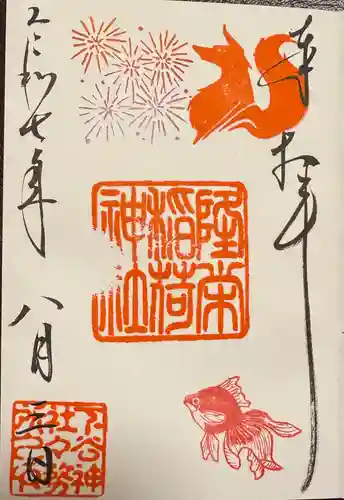 奉拝
隆栄
稲荷
神社
令和七年
八月三日
下谷神
社々務